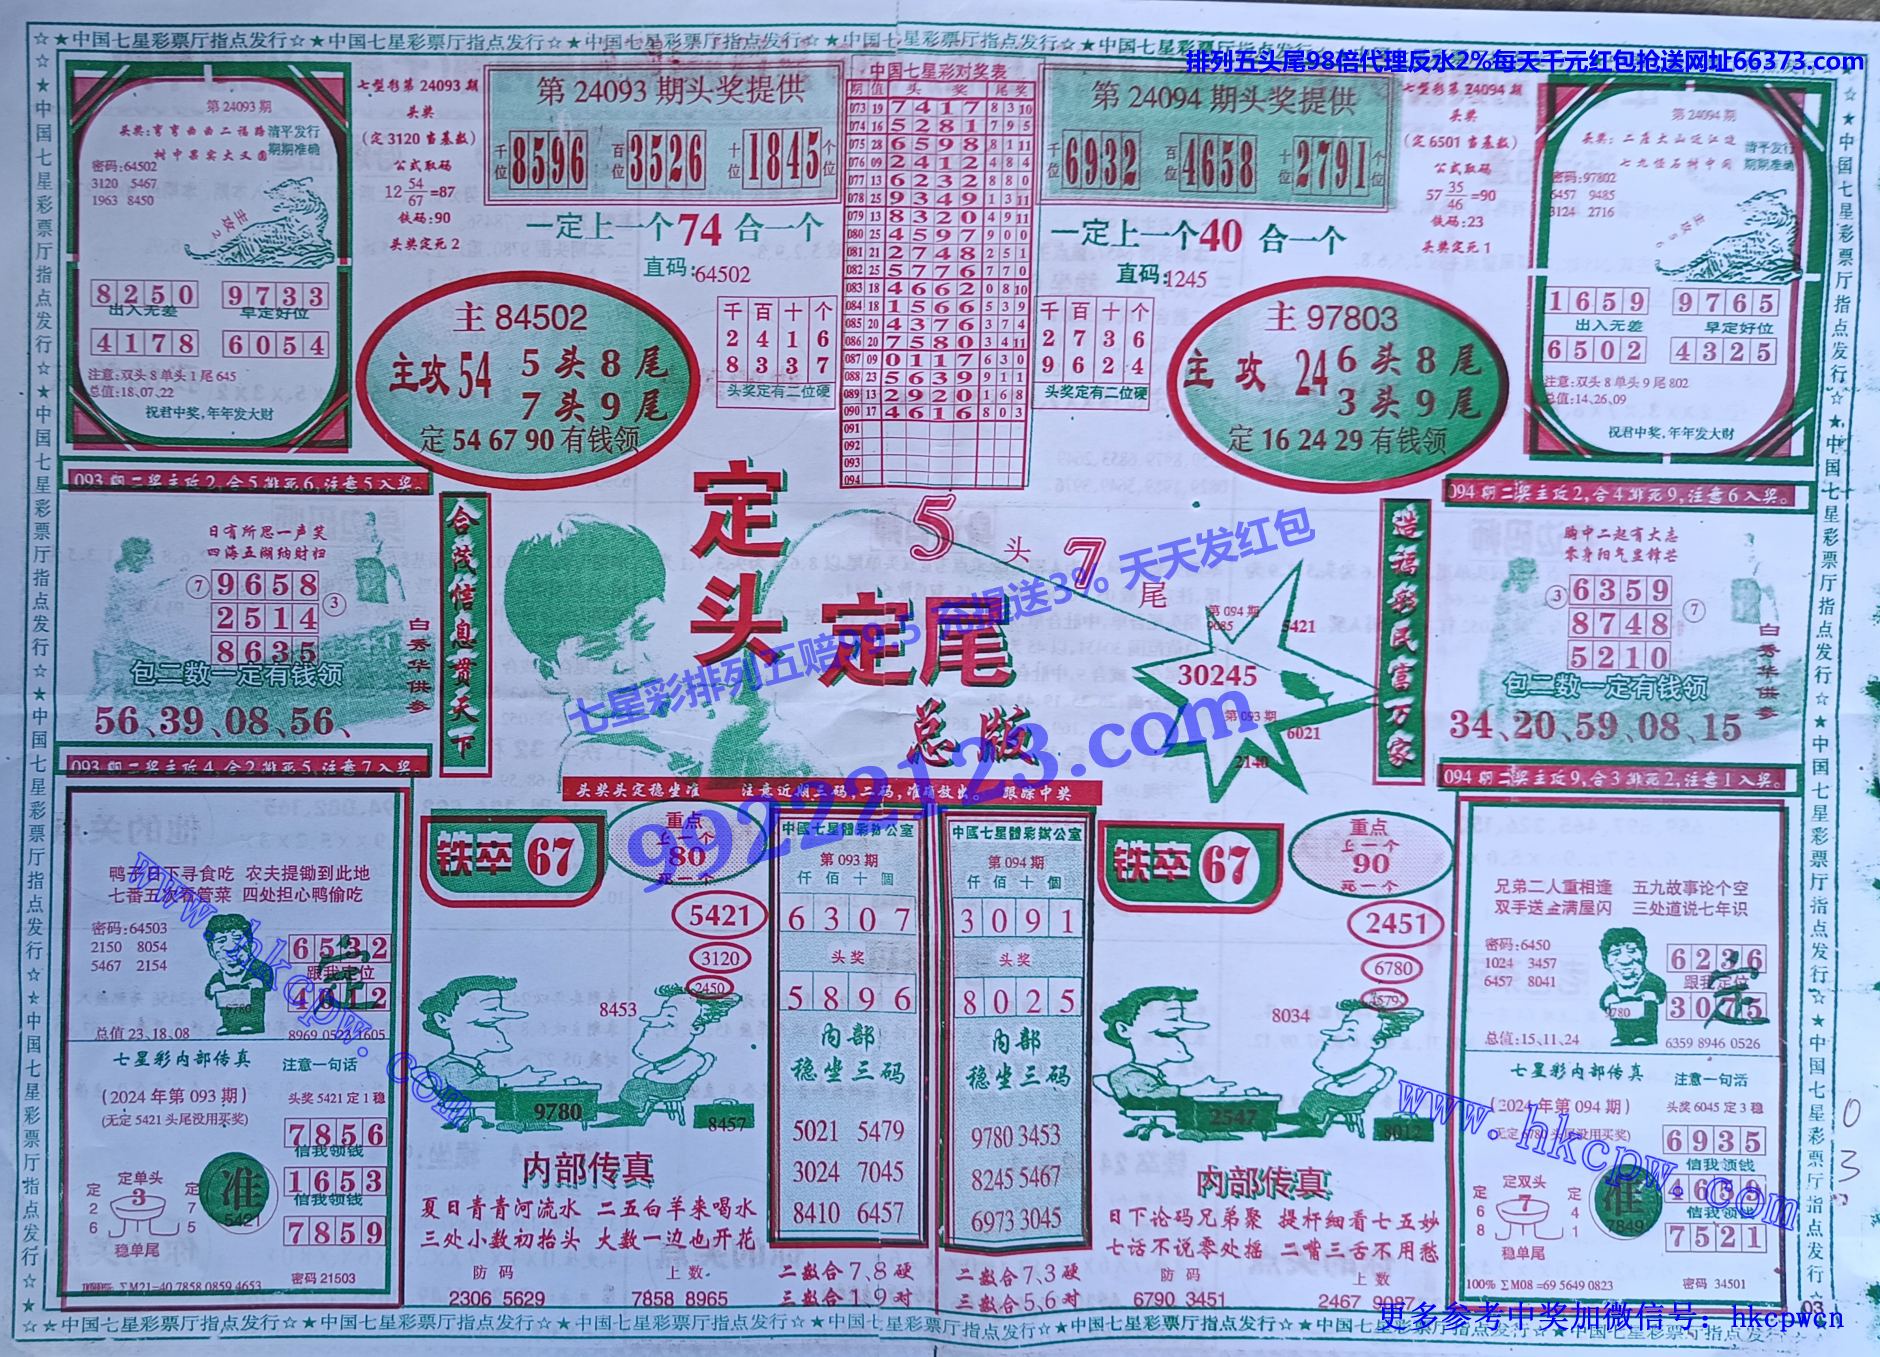 ☆★中国七星彩票厅指点发行☆★中国七星彩票厅指点发行☆★中国七星彩票厅指点发行☆★中国七星彩票厅指点发行☆★中国七星彩票厅指点发行
排列五头尾98倍代理反水2%每天千元红包抢送网址66373.com
第 24093 期
头奖:弯弯曲曲二福路
树中果实大又圆
清平发行
期期准确
密码:64502
3120 5467
1963 8450
8250 9733
出入无差 早定好位
4178 6054
注意:双头 8 单头 1 尾 645
总值:18,07,22
祝君中奖,年年发大财
七星彩第 24093 期
头奖
(定 3120 当基数)
公式取码
12 54/67 =87
铁码:90
头奖定死 2
第 24093 期头奖提供
千位 8596 百位 3526 十位 1845 个位
一定上一个 74 合一个
直码:64502
主 84502
主攻 54 5 头 8 尾
7 头 9 尾
定 54 67 90 有钱领
千 百 十 个
2 4 1 6
8 3 3 7
头奖定有二位硬
中国七星彩对奖表
期 值 头 奖 尾 奖
073 19 7 4 1 7 8 3 10
074 16 5 2 8 1 7 9 5
075 28 6 5 9 8 8 1 11
076 09 2 4 1 2 4 8 4
077 13 6 2 3 2 8 8 0
078 25 9 3 4 9 1 3 11
079 13 8 3 2 0 4 9 11
080 25 4 5 9 7 9 0 0
081 21 2 7 4 8 2 5 1
082 25 5 7 7 6 7 7 0
083 18 4 6 6 2 0 8 10
084 18 1 5 6 6 5 3 9
085 20 4 3 7 6 3 7 4
086 20 7 5 8 0 3 4 11
087 09 0 1 1 7 6 3 0
088 23 5 6 3 9 9 1 1
089 13 2 9 2 0 1 6 8
090 17 4 6 1 6 8 0 3
091
092
093
094
第 24094 期头奖提供
千位 6932 百位 4658 十位 2791 个位
一定上一个 40 合一个
直码:1245
千 百 十 个
2 7 3 6
9 6 2 4
头奖定有二位硬
主 97803
主攻 24 6 头 8 尾
3 头 9 尾
定 16 24 29 有钱领
七星彩第 24094 期
头奖
(定 6501 当基数)
公式取码
57 35/46 =90
铁码:23
头奖定死 1
第 24094 期
头奖:二座大山近江边
七九怪石树中间
清平发行
期期准确
密码:97802
6457 9485
3124 2716
1659 9765
出入无差 早定好位
6502 4325
注意:双头 8 单头 9 尾 802
总值:14,26,09
祝君中奖,年年发大财
093 期二奖主攻 2,合 5 排死 6,注意 5 入奖。
日有所思一声笑
四海五湖纳财归
⑦ 9658
2514 ③
8635
包二数一定有钱领
56、39、08、56、
白秀华供参
093 期二奖主攻 4,合 2 排死 5,注意 7 入奖。
合茂信息贯天下
定头定尾
总版
5 头 7 尾
七星彩排列五赔99.5 充提送3% 天天发红包
99222123.com
第 094 期
9085
5421
30245
第 093 期
6021
2140
造福彩民富万家
头奖头定稳坐准 注意近期三码,二码,准确放出。 跟踪中奖
094 期二奖主攻 2,合 4 排死 9,注意 6 入奖。
胸中二起有大志
零身阳气显锋芒
③ 6359
8748 ⑦
5210
包二数一定有钱领
34、20、59、08、15
白秀华供参
094 期二奖主攻 9,合 3 排死 2,注意 1 入奖。
鸭子日下寻食吃 农夫提锄到此地
七番五次看管菜 四处担心鸭偷吃
密码:64503
2150 8054
5467 2154
6532
跟我定位
4612
9780
总值 23,18,08
8969 0523 1605
七星彩内部传真 注意一句话
(2024 年第 093 期) 头奖 5421 定 1 稳
(无定 5421 头尾没用买奖)
7856
信我领钱
1653
信我领钱
7859
定单头
定 2 6
3
定 7 5
稳单尾
准
5421
100% ΣM21=40 7858 0859 4653 密码 21503
www.hkcpw.com
铁卒 67
重点
上一个
80
死一个
5421
3120
2450
8453
9780
8457
内部传真
夏日青青河流水 二五白羊来喝水
三处小数初抬头 大数一边也开花
防 码 上 数
2306 5629 7858 8965
中國七星體彩辦公室
第 093 期
仟 佰 十 個
6 3 0 7
头 奖
5 8 9 6
内部
稳坐三码
5021 5479
3024 7045
8410 6457
二数合 7、8 硬
三数合 1、9 对
中國七星體彩辦公室
第 094 期
仟 佰 十 個
3 0 9 1
头 奖
8 0 2 5
内部
稳坐三码
9780 3453
8245 5467
6973 3045
二数合 7、3 硬
三数合 5、6 对
铁卒 67
重点
上一个
90
死一个
2451
6780
8034
2547
8012
内部传真
日下论码兄弟聚 提杆细看七五妙
七话不说零处摇 二嘴三舌不用愁
防 码 上 数
6790 3451 2467 9087
兄弟二人重相逢 五九故事论个空
双手送金满屋闪 三处道说七年识
密码:6450
1024 3457
6457 8041
6236
跟我定位
3075
9780
总值:15,11,24
6359 8946 0526
七星彩内部传真 注意一句活
(2024 年第 094 期) 头奖 6045 定 3 稳
(无定 6780 头尾没用买奖)
6935
信我领钱
4659
信我领钱
7521
定双头
定 6 8
7
定 4 1
稳单尾
准
7849
100% ΣM08 =69 5649 0823 密码 34501
www.hkcpw.com
03
更多参考中奖加微信号: hkcpwcn
☆☆★中国七星彩票厅指点发行☆★中国七星彩票厅指点发行☆★中国七星彩票厅指点发行☆★中国七星彩票厅指点发行☆★中国七星彩票厅指点发行☆